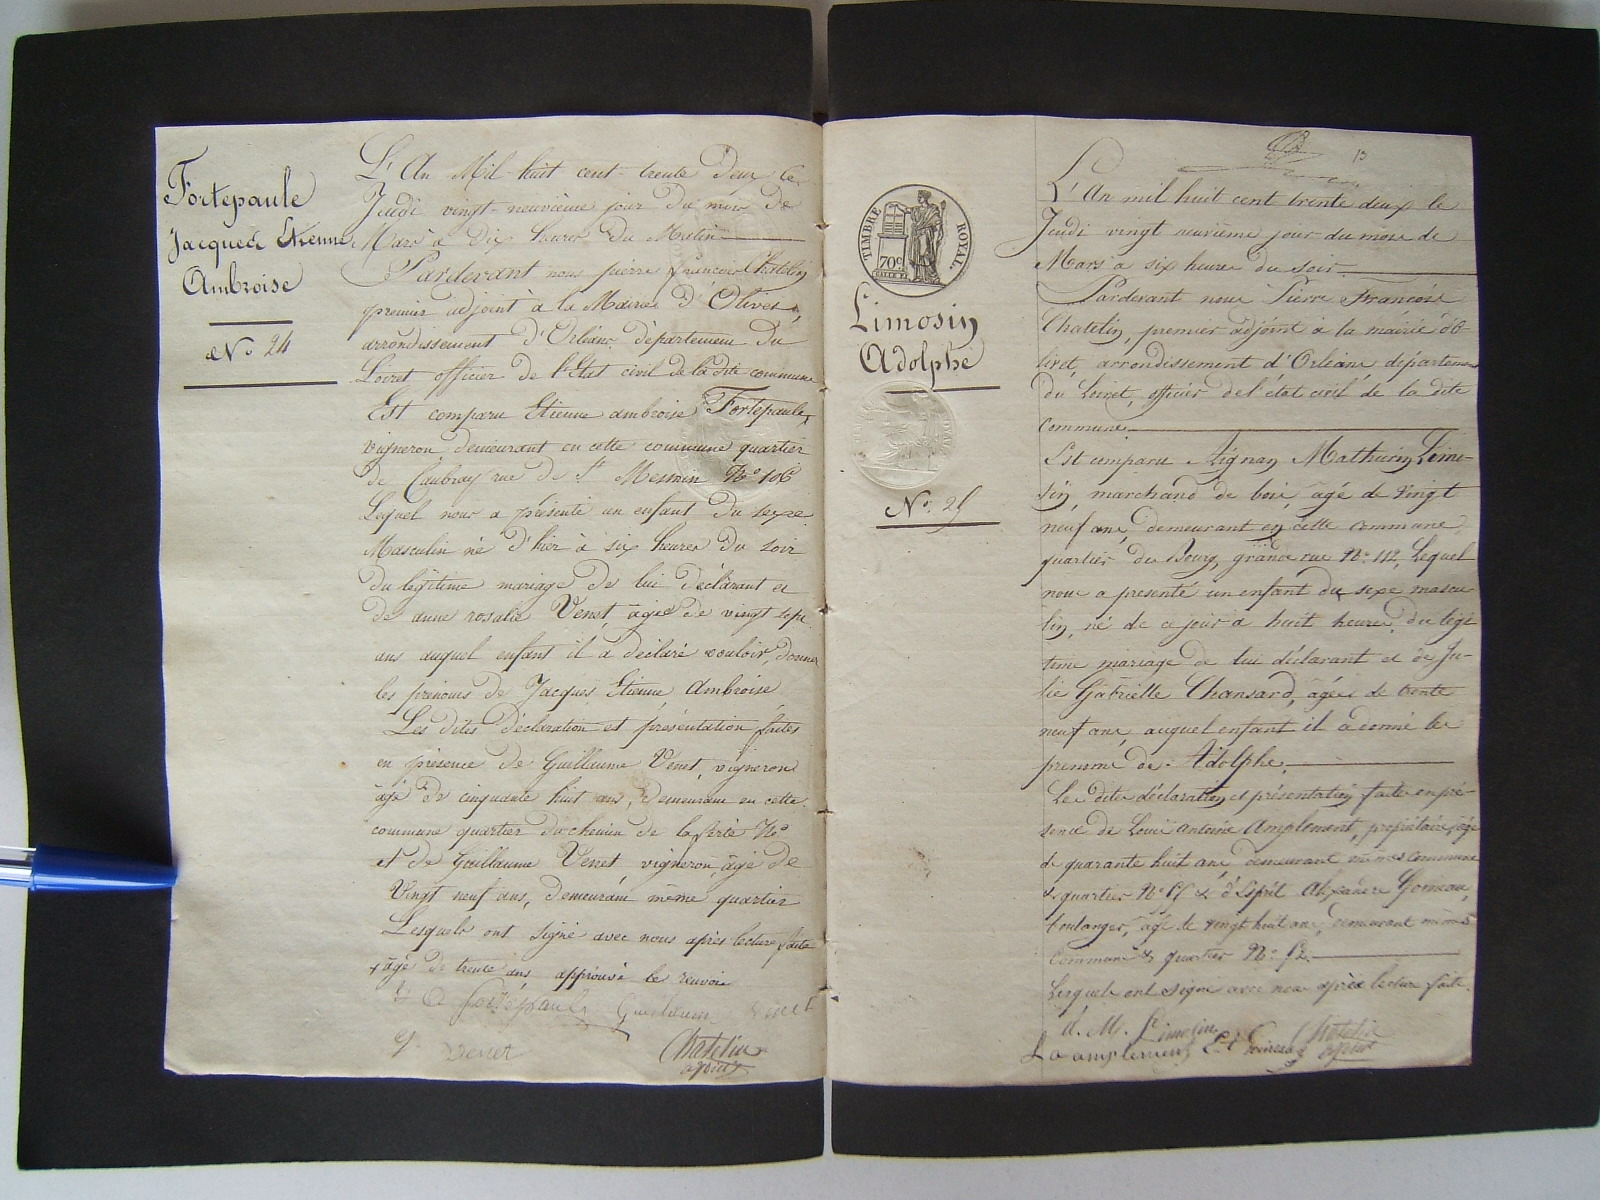 Fortepaule
Jacques Etienne
Ambroise
No. 24
L'An Mil huit cent trente Deux le
Jeudi vingt-neuvième jour du mois de
Mars à Dix heures du Matin
Pardevant nous pierre françois Chatelin
premier adjoint à la Mairie d'Olivet,
arrondissement d'Orléans département du
Loiret officier de l'Etat civil de la dite commune
Est comparu Etienne ambroise Fortepaule,
vigneron demeurant en cette commune quartier
de Caubray rue de St Mesmin No 106
Lequel nous a présenté un enfant du sexe
Masculin né d'hier à six heures du soir
du légitime mariage de lui déclarant et
de anne rosalie Venet, âgée de vingt sept
ans auquel enfant il a déclaré vouloir donner
les prénoms de Jacques Etienne Ambroise
Les dites déclaration et présentation faites
en présence de Guillaume Venet, vigneron
âgé de cinquante huit ans, demeurant en cette
commune quartier du chemin de la ferté No
et de Guillaume Venet vigneron, âgé de
Vingt neuf ans, demeurant même quartier
Lesquels ont signé avec nous après lecture faite
+ âgé de trente ans approuvé le renvoi
E A fortepaule Guillaume Venet
g. venet
Chatelin
adjoint
13
TIMBRE ROYAL.
70c
Limosin
Adolphe
No. 25
L'An mil huit cent trente deux le
Jeudi vingt neuvième jour du mois de
Mars à six heures du soir
Pardevant nous Pierre François
Chatelin, premier adjoint à la mairie d'O-
livet, arrondissement d'Orléans, département
du Loiret, officier de l'état civil de la dite
commune
Est comparu Aignan Mathurin Limo-
sin, marchand de bois, agé de vingt
neuf ans, demeurant en cette commune
quartier du Bourg, grande rue No. 112, Lequel
nous a présenté un enfant du sexe mascu
lin, né de ce jour à huit heures, du légi
time mariage de lui déclarant et de Ju-
lie Gabrielle Chansard, agée de trente
neuf ans, auquel enfant il a donné le
prénom de Adolphe,
Les dites déclaration et présentation faite en pré-
sence de Louis Antoine Amplement, propriétaire, agé
de quarante huit ans, demeurant même commune
& quartier No. & d'Esprit Alexandre Goineau,
boulanger, agé de vingt huit ans, demeurant même
commune & quartier No. 52
Lesquels ont signé avec nous après lecture faite.
a. M. Limosin
L a amplement
Chatelin
adjoint